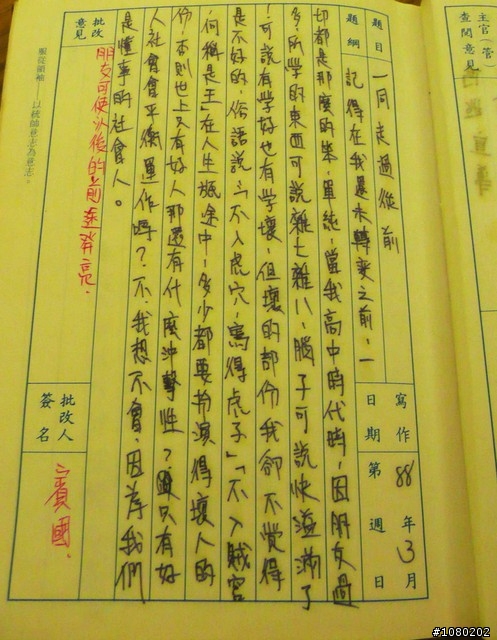 主官(管)
查閱意見
題目
一同走過從前
題綱
記得在我還未轉變之前,一
寫作日期
88年3月
第週日
切都是那麼的笨,單純,當我高中時代時,因朋友過
多,所學的東西可說雜七雜八,腦子可說快溢滿了
!可說有學好也有學壞,但壞的部份我卻不覺得
是不好的,俗語說:「不入虎穴,焉得虎子」「不入賊窖
,何稱是王」在人生旅途中,多少都要扮演得壞人的
份,否則世上只有好人那還有什麼沖擊性?只有好
人社會會平衡運作嗎?不,我想不會,因為我們
是懂事的社會人。
批改意見
朋友可使以後的前途漂亮.
批改人簽名
賓國
服從領袖——以統帥意志為意志。
#1080202